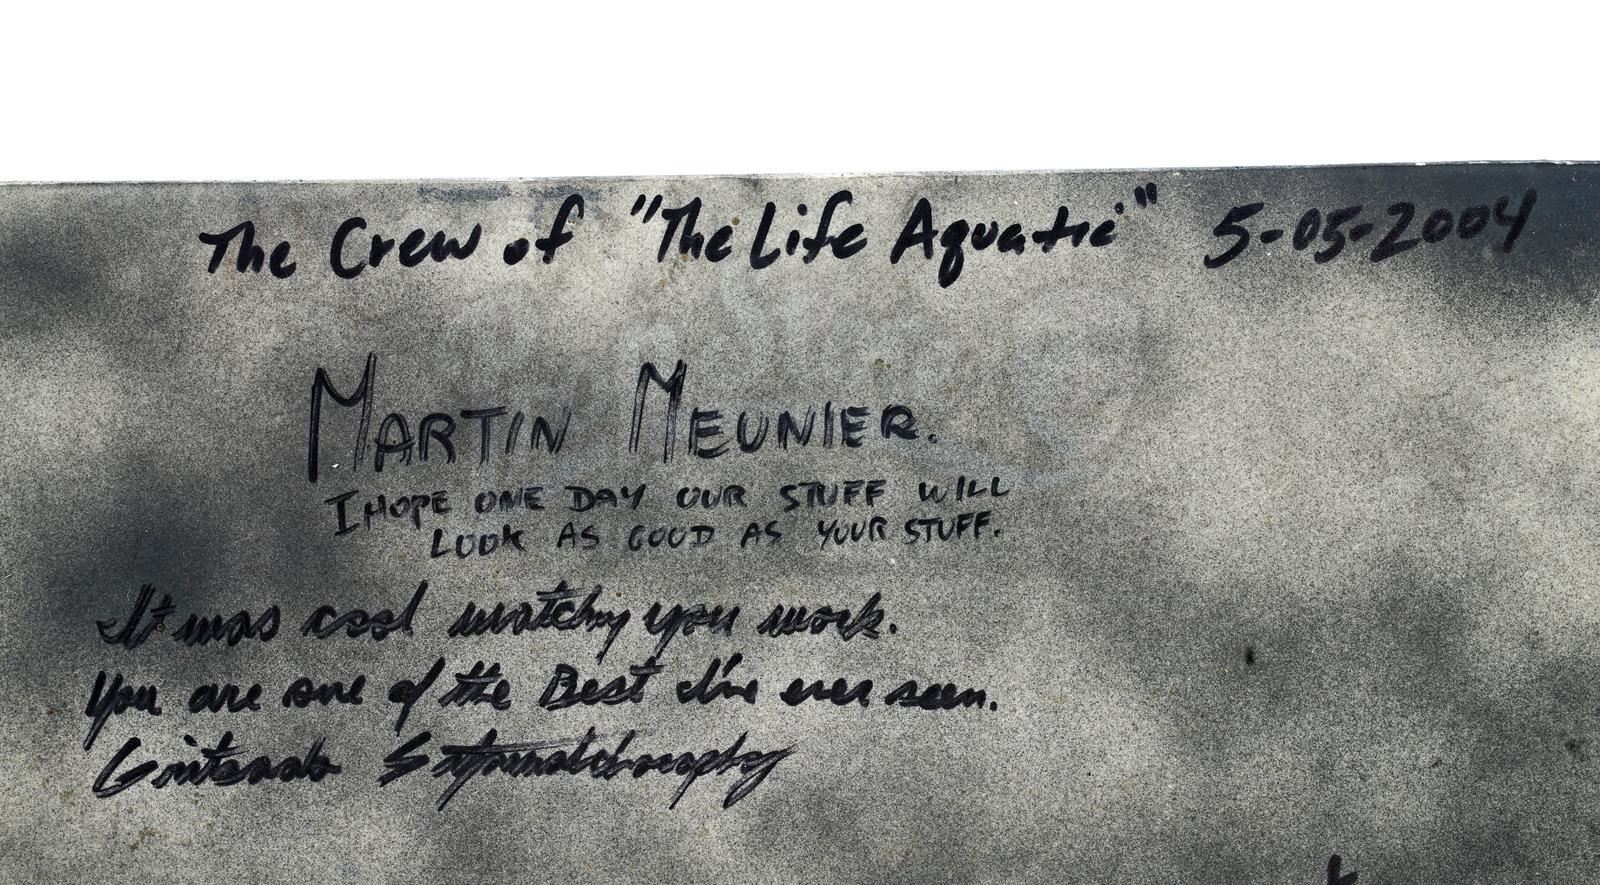 The Crew of "The Life Aquatic" 5-05-2004
MARTIN MEUNIER.
I HOPE ONE DAY OUR STUFF WILL
LOOK AS GOOD AS YOUR STUFF.
It was cool watching you work.
You are one of the Best I've ever seen.